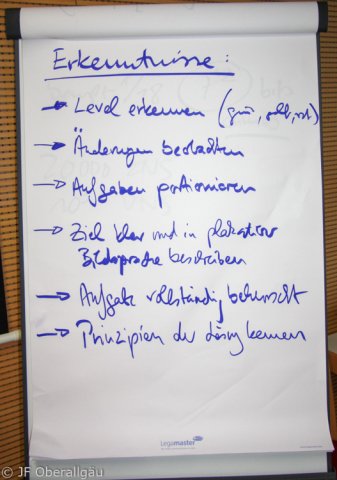 Erkenntnisse:
→ Level erkennen (grün, gelb, rot)
→ Änderungen beobachten
→ Aufgaben portionieren
→ Ziel klar und in plakativer
Bildsprache beschreiben
→ Aufgabe vollständig beherrscht
→ Prinzipien der Lösung kennen
Legamaster
© JF Oberallgäu